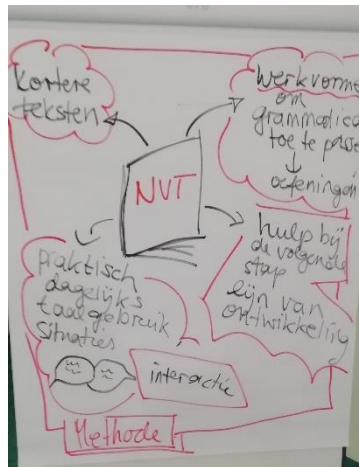 kortere
teksten
werkvormen
om
grammatica
toe te passen
↓
oefeningen
NVT
praktisch
dagelijks
taalgebruik
situaties
hulp bij
de volgende
stap
lijn van
ontwikkeling
interactie
Methode